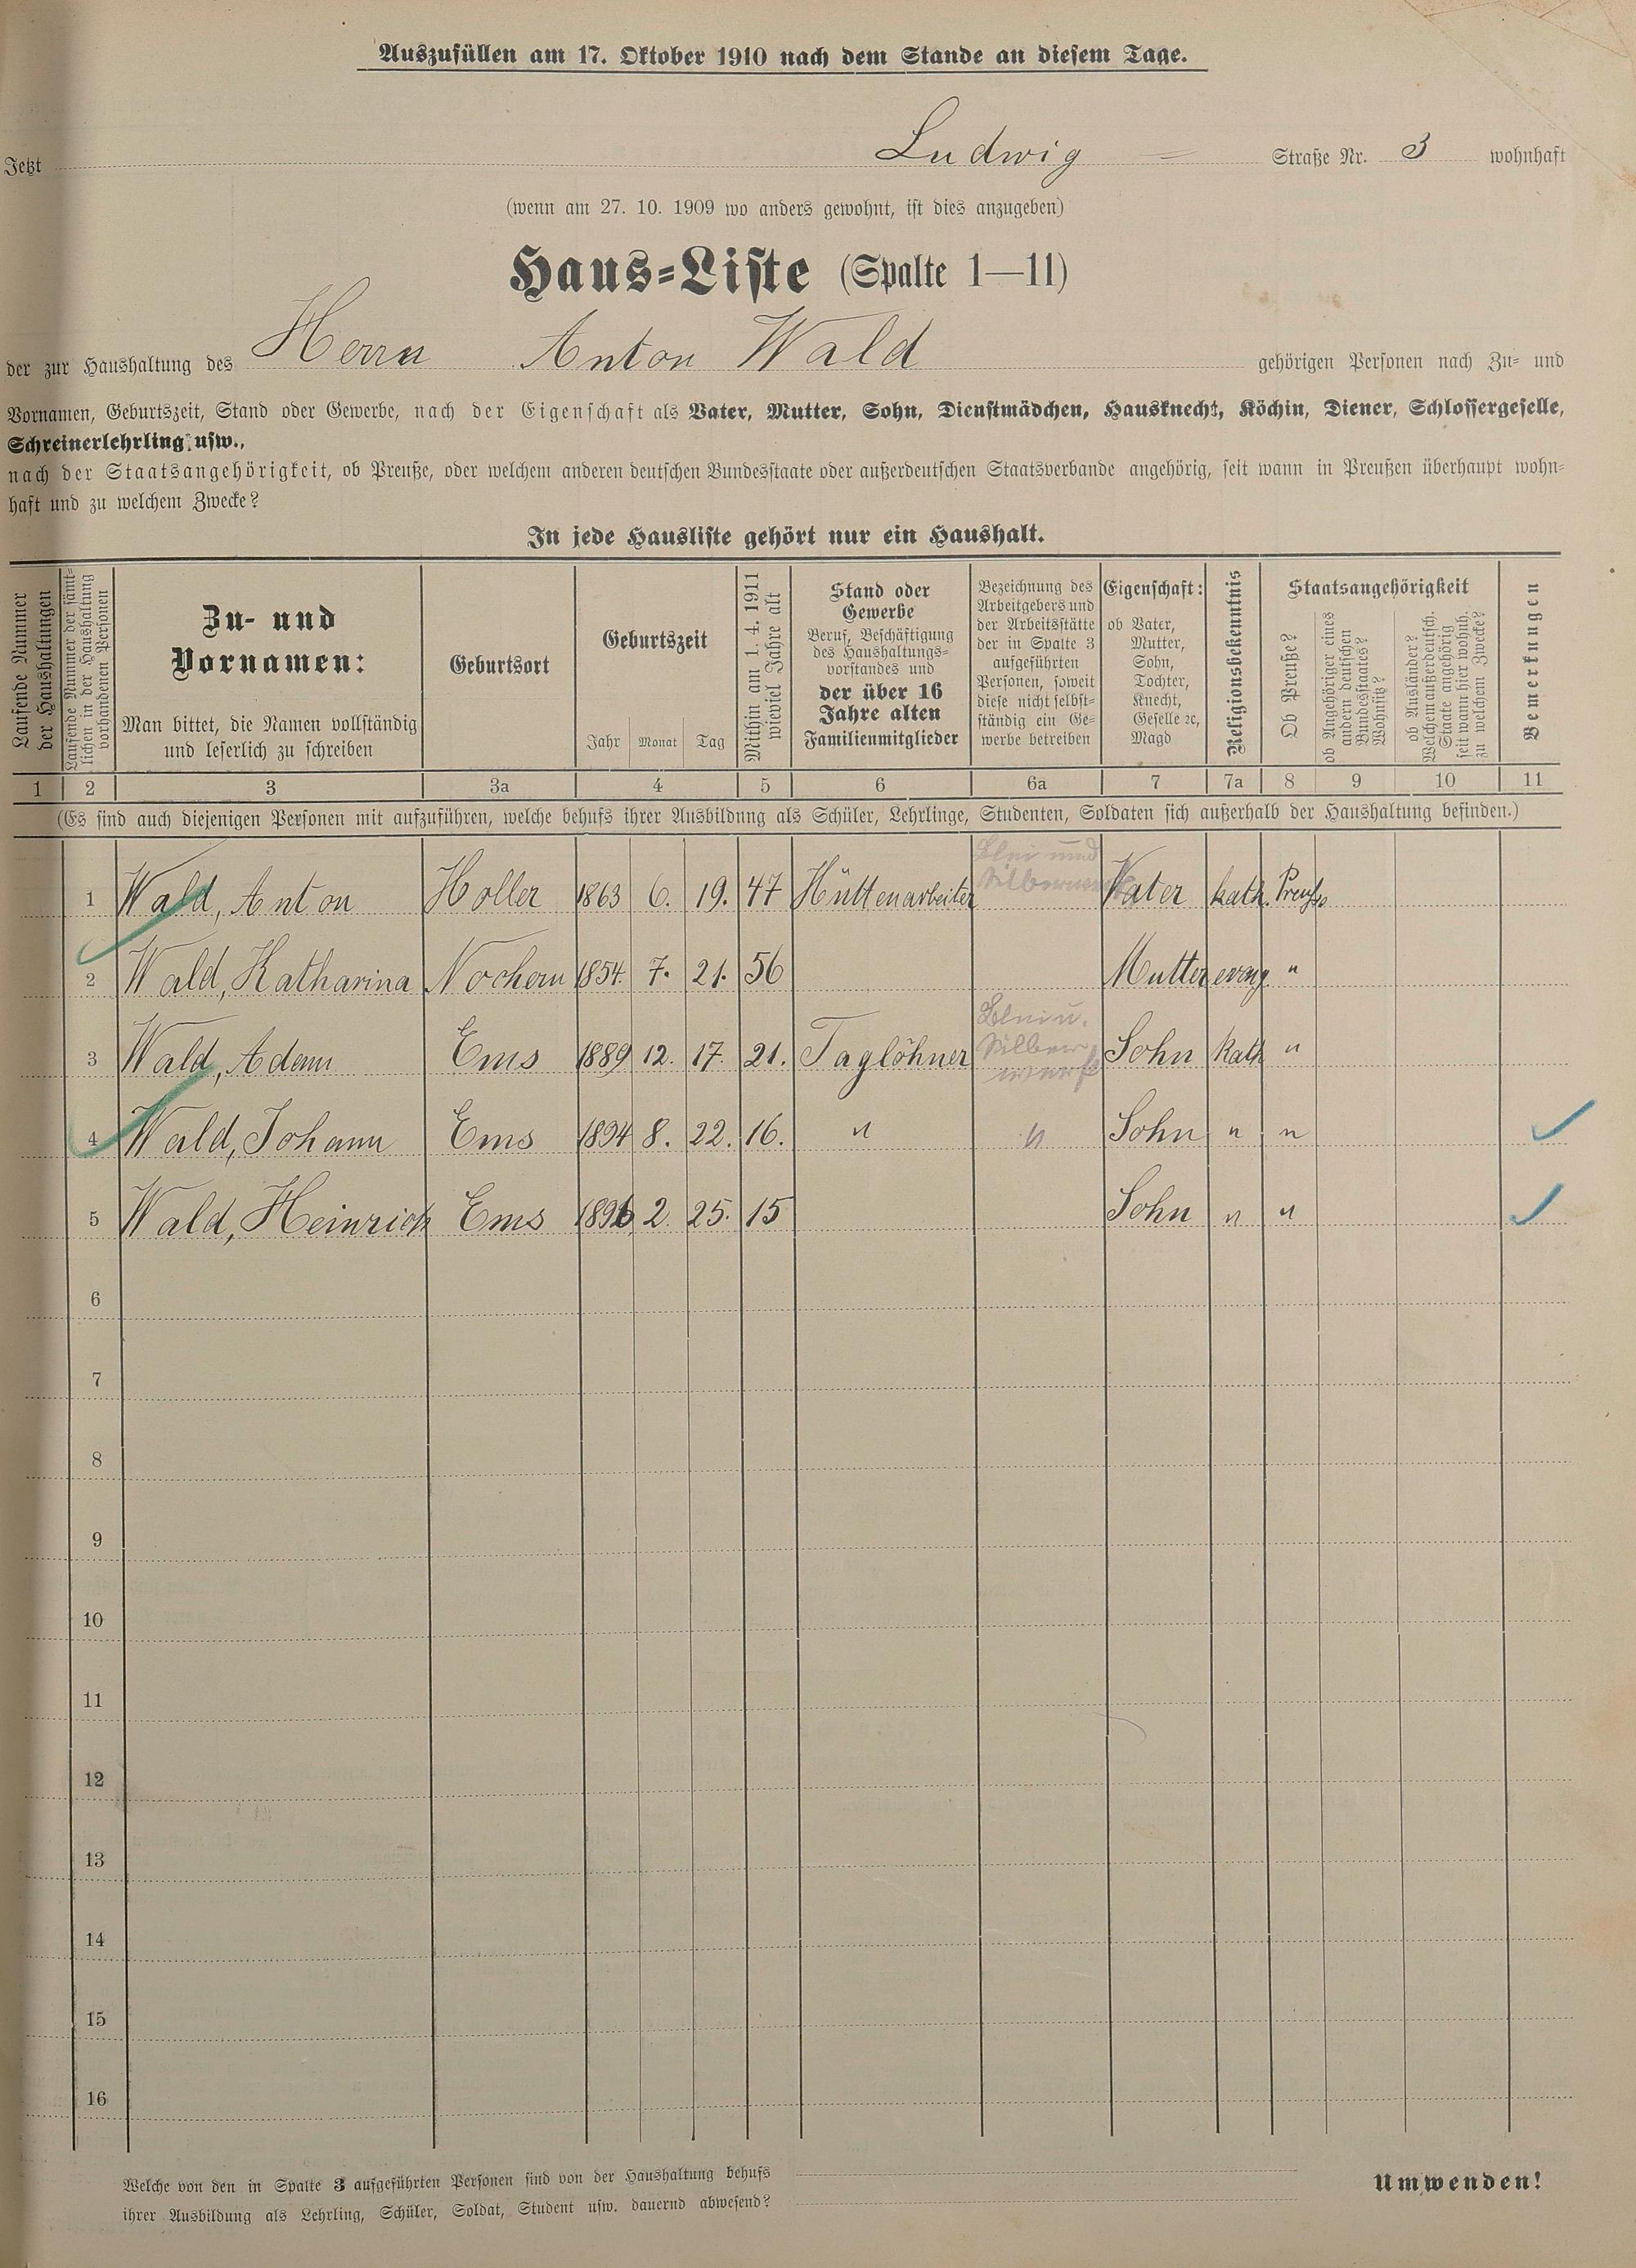 Auszufüllen am 17. Oktober 1910 nach dem Stande an diesem Tage.
Jetzt Ludwig Straße Nr. 3 wohnhaft
(wenn am 27. 10. 1909 wo anders gewohnt, ist dies anzugeben)
Haus-Liste (Spalte 1—11)
der zur Haushaltung des Herrn Anton Wald gehörigen Personen nach Zu- und
Vornamen, Geburtszeit, Stand oder Gewerbe, nach der Eigenschaft als Vater, Mutter, Sohn, Dienstmädchen, Hausknecht, Köchin, Diener, Schlossergeselle,
Schreinerlehrling usw.,
nach der Staatsangehörigkeit, ob Preuße, oder welchem anderen deutschen Bundesstaate oder außerdeutschen Staatsverbande angehörig, seit wann in Preußen überhaupt wohn-
haft und zu welchem Zwecke?
In jede Hausliste gehört nur ein Haushalt.
Laufende Nummer
der Haushaltungen
Laufende Nummer der sämt-
lichen in der Haushaltung
vorhandenen Personen
Zu- und
Vornamen:
Man bittet, die Namen vollständig
und leserlich zu schreiben
Geburtsort
Geburtszeit
Jahr Monat Tag
Mithin am 1. 4. 1911
wieviel Jahre alt
Stand oder
Gewerbe
Beruf, Beschäftigung
des Haushaltungs-
vorstandes und
der über 16
Jahre alten
Familienmitglieder
Bezeichnung des
Arbeitgebers und
der Arbeitsstätte
der in Spalte 3
aufgeführten
Personen, soweit
diese nicht selbst-
ständig ein Ge-
werbe betreiben
Eigenschaft:
ob Vater,
Mutter,
Sohn,
Tochter,
Knecht,
Geselle ꝛc,
Magd
Religionsbekenntnis
Staatsangehörigkeit
Ob Preuße?
ob Angehöriger eines
andern deutschen
Bundesstaates?
Wohnsitz?
ob Ausländer?
Welchem außerdeutsch.
Staate angehörig
seit wann hier wohnh.
zu welchem Zwecke?
Bemerkungen
1 2 3 3a 4 5 6 6a 7 7a 8 9 10 11
(Es sind auch diejenigen Personen mit aufzuführen, welche behufs ihrer Ausbildung als Schüler, Lehrlinge, Studenten, Soldaten sich außerhalb der Haushaltung befinden.)
1 Wald, Anton Holler 1863 6. 19. 47 Hüttenarbeiter Blei und Silberwerk Vater kath. Preuße
2 Wald, Katharina Nochern 1854. 7. 21. 56 Mutter evang. "
3 Wald, Adam Ems 1889 12. 17. 21. Taglöhner Blei u. Silberwerk Sohn Kath "
4 Wald, Johann Ems 1894 8. 22. 16. " " Sohn " "
5 Wald, Heinrich Ems 1896 2. 25. 15 Sohn " "
6
7
8
9
10
11
12
13
14
15
16
Welche von den in Spalte 3 aufgeführten Personen sind von der Haushaltung behufs
ihrer Ausbildung als Lehrling, Schüler, Soldat, Student usw. dauernd abwesend?
Umwenden!